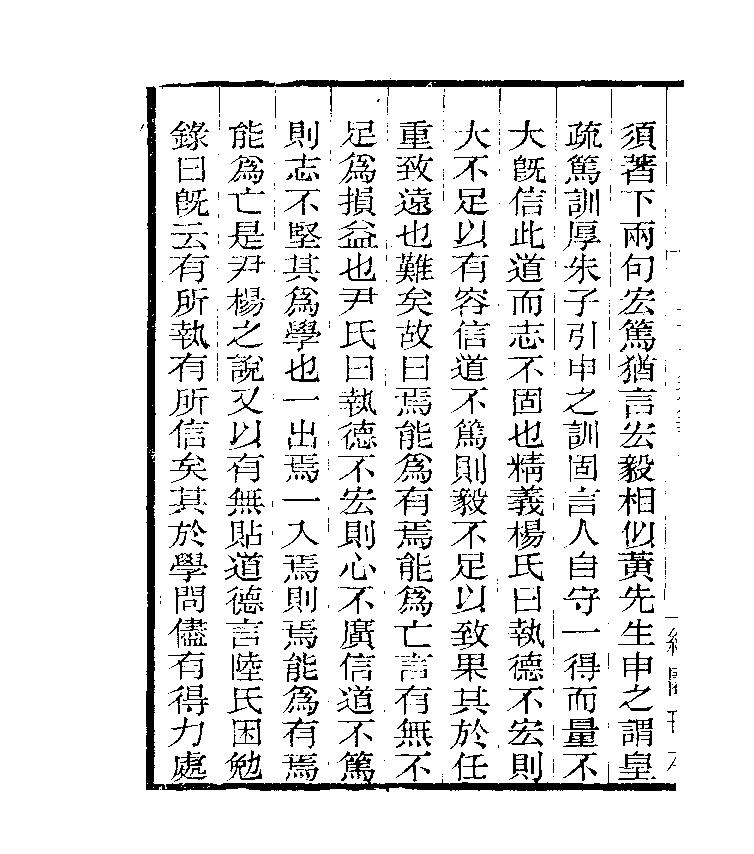 須著下兩句宏篤猶言宏毅相似黃先生申之謂皇
疏篤訓厚朱子引申之訓固言人自守一得而量不
大旣信此道而志不固也精義楊氏曰執德不宏則
大不足以有容信道不篤則毅不足以致果其於任
重致遠也難矣故曰焉能爲有焉能爲亡言有無不
足爲損益也尹氏曰執德不宏則心不廣信道不篤
則志不堅其爲學也一出焉一入焉則焉能爲有焉
能爲亡是尹楊之說又以有無貼道德言陸氏困勉
錄曰旣云有所執有所信矣其於學問儘有得力處